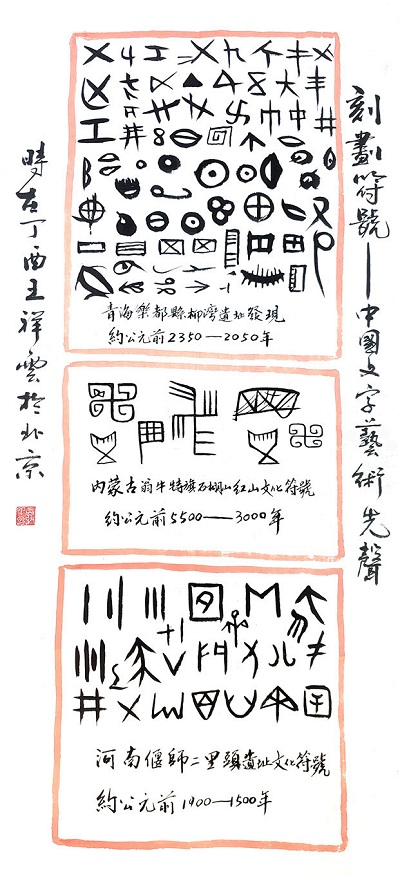 刻劃符號——中國文字藝術先聲
青海樂都縣柳灣遺址發現
約公元前2350—2050年
內蒙古翁牛特旗石棚山紅山文化符號
約公元前5500——3000年
河南偃師二里頭遺址文化符號
約公元前1900—1500年
時在丁酉王祥雲於北京